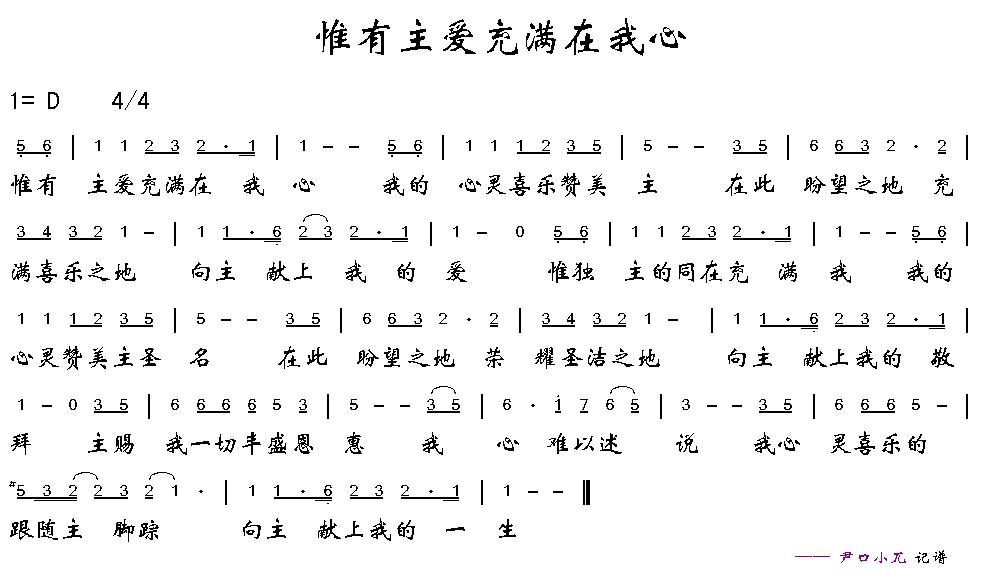 惟有主爱充满在我心
1= D 4/4
5 6 | 1 1 2 3 2 · 1 | 1 - - 5 6 | 1 1 1 2 3 5 | 5 - - 3 5 | 6 6 3 2 · 2 |
惟有 主爱充满在 我 心 我的 心灵喜乐赞美 主 在此 盼望之地 充
3 4 3 2 1 - | 1 1 · 6 2 3 2 · 1 | 1 - 0 5 6 | 1 1 2 3 2 · 1 | 1 - - 5 6 |
满喜乐之地 向主 献上 我 的 爱 惟独 主的同在充 满 我 我的
1 1 1 2 3 5 | 5 - - 3 5 | 6 6 3 2 · 2 | 3 4 3 2 1 - | 1 1 · 6 2 3 2 · 1 |
心灵赞美主圣 名 在此 盼望之地 荣 耀圣洁之地 向主 献上我的 敬
1 - 0 3 5 | 6 6 6 6 5 3 | 5 - - 3 5 | 6 · 1 7 6 5 | 3 - - 3 5 | 6 6 6 5 - |
拜 主赐 我一切丰盛恩 惠 我 心 难以述 说 我心 灵喜乐的
#5 3 2 2 3 2 1 · | 1 1 · 6 2 3 2 · 1 | 1 - - ‖
跟随主 脚踪 向主 献上我的 一 生
—— 尹口小兀 记谱